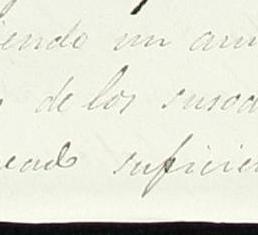 iendo un am
de los susod
eado suficien